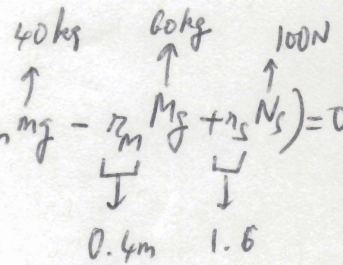 40kg 60kg 100N
mg - r_M Mg + r_S N_S) = 0
0.4m 1.6